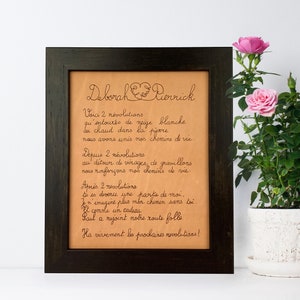 Deborah Pierrick
Voici 2 révolutions
qu'entourés de neige blanche
au chaud dans la pierre
nous avons unis nos chemins de vie
Depuis 2 révolutions
au détour de virages, de gravillons
nous renforçons nos chemins de vie
Après 2 révolutions
tu es devenue une chante de moi
je n'imagine plus mon chemin sans toi
Et comme un cadeau
Paul a rejoint notre route folle
Ha vivement les prochaines révolutions!